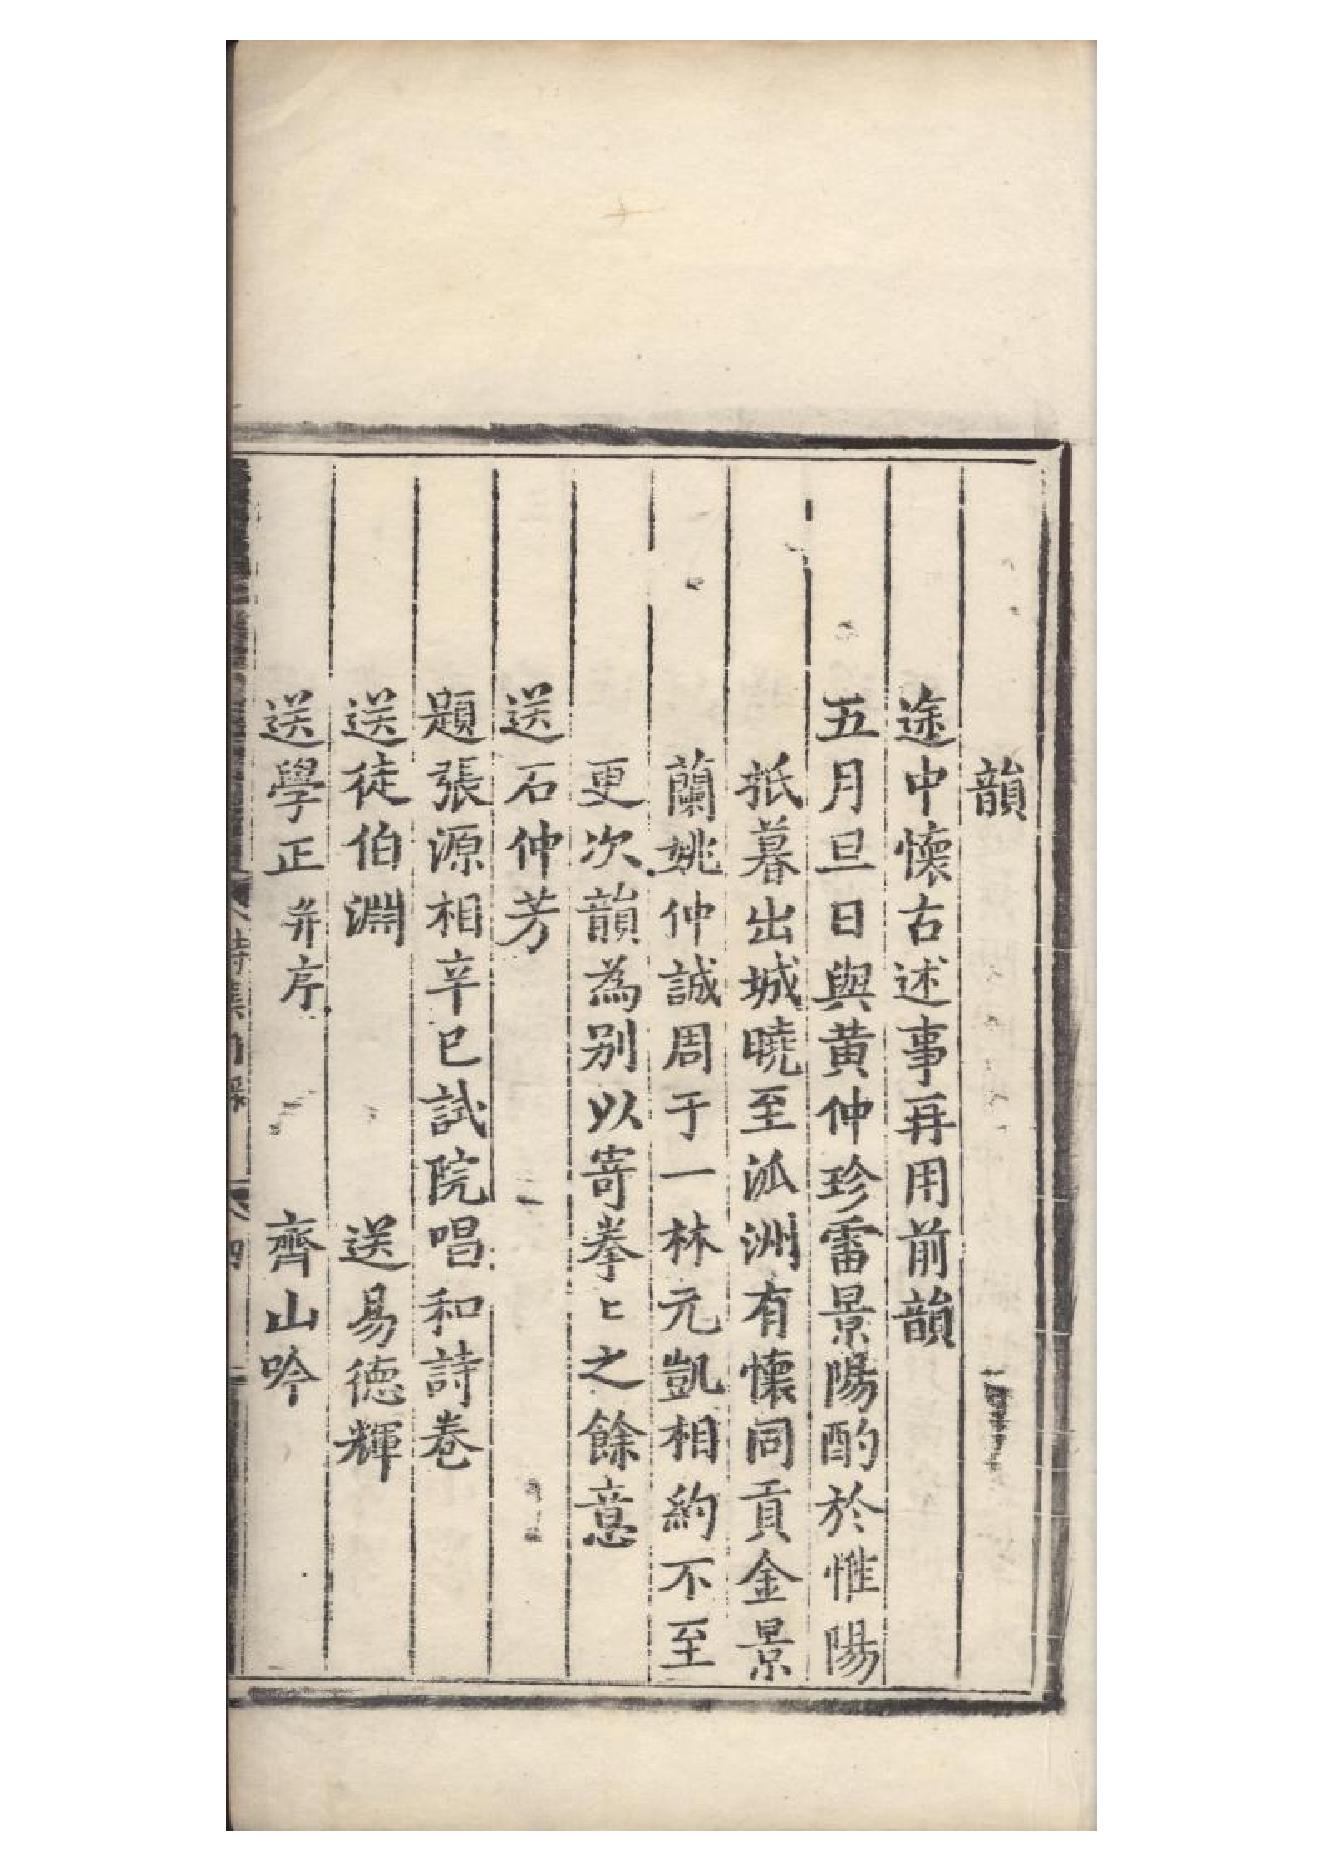 韻
途中懷古述事再用前韻
五月旦日與黄仲珍雷景陽酌於惟陽
抵暮出城曉至泒洲有懷同貢金景
蘭姚仲誠周于一林元凱相約不至
更次韻為别以寄拳〻之餘意
送石仲芳
題張源相辛巳試院唱和詩卷
送徒伯淵　送易德輝
送學正并序　齊山吟